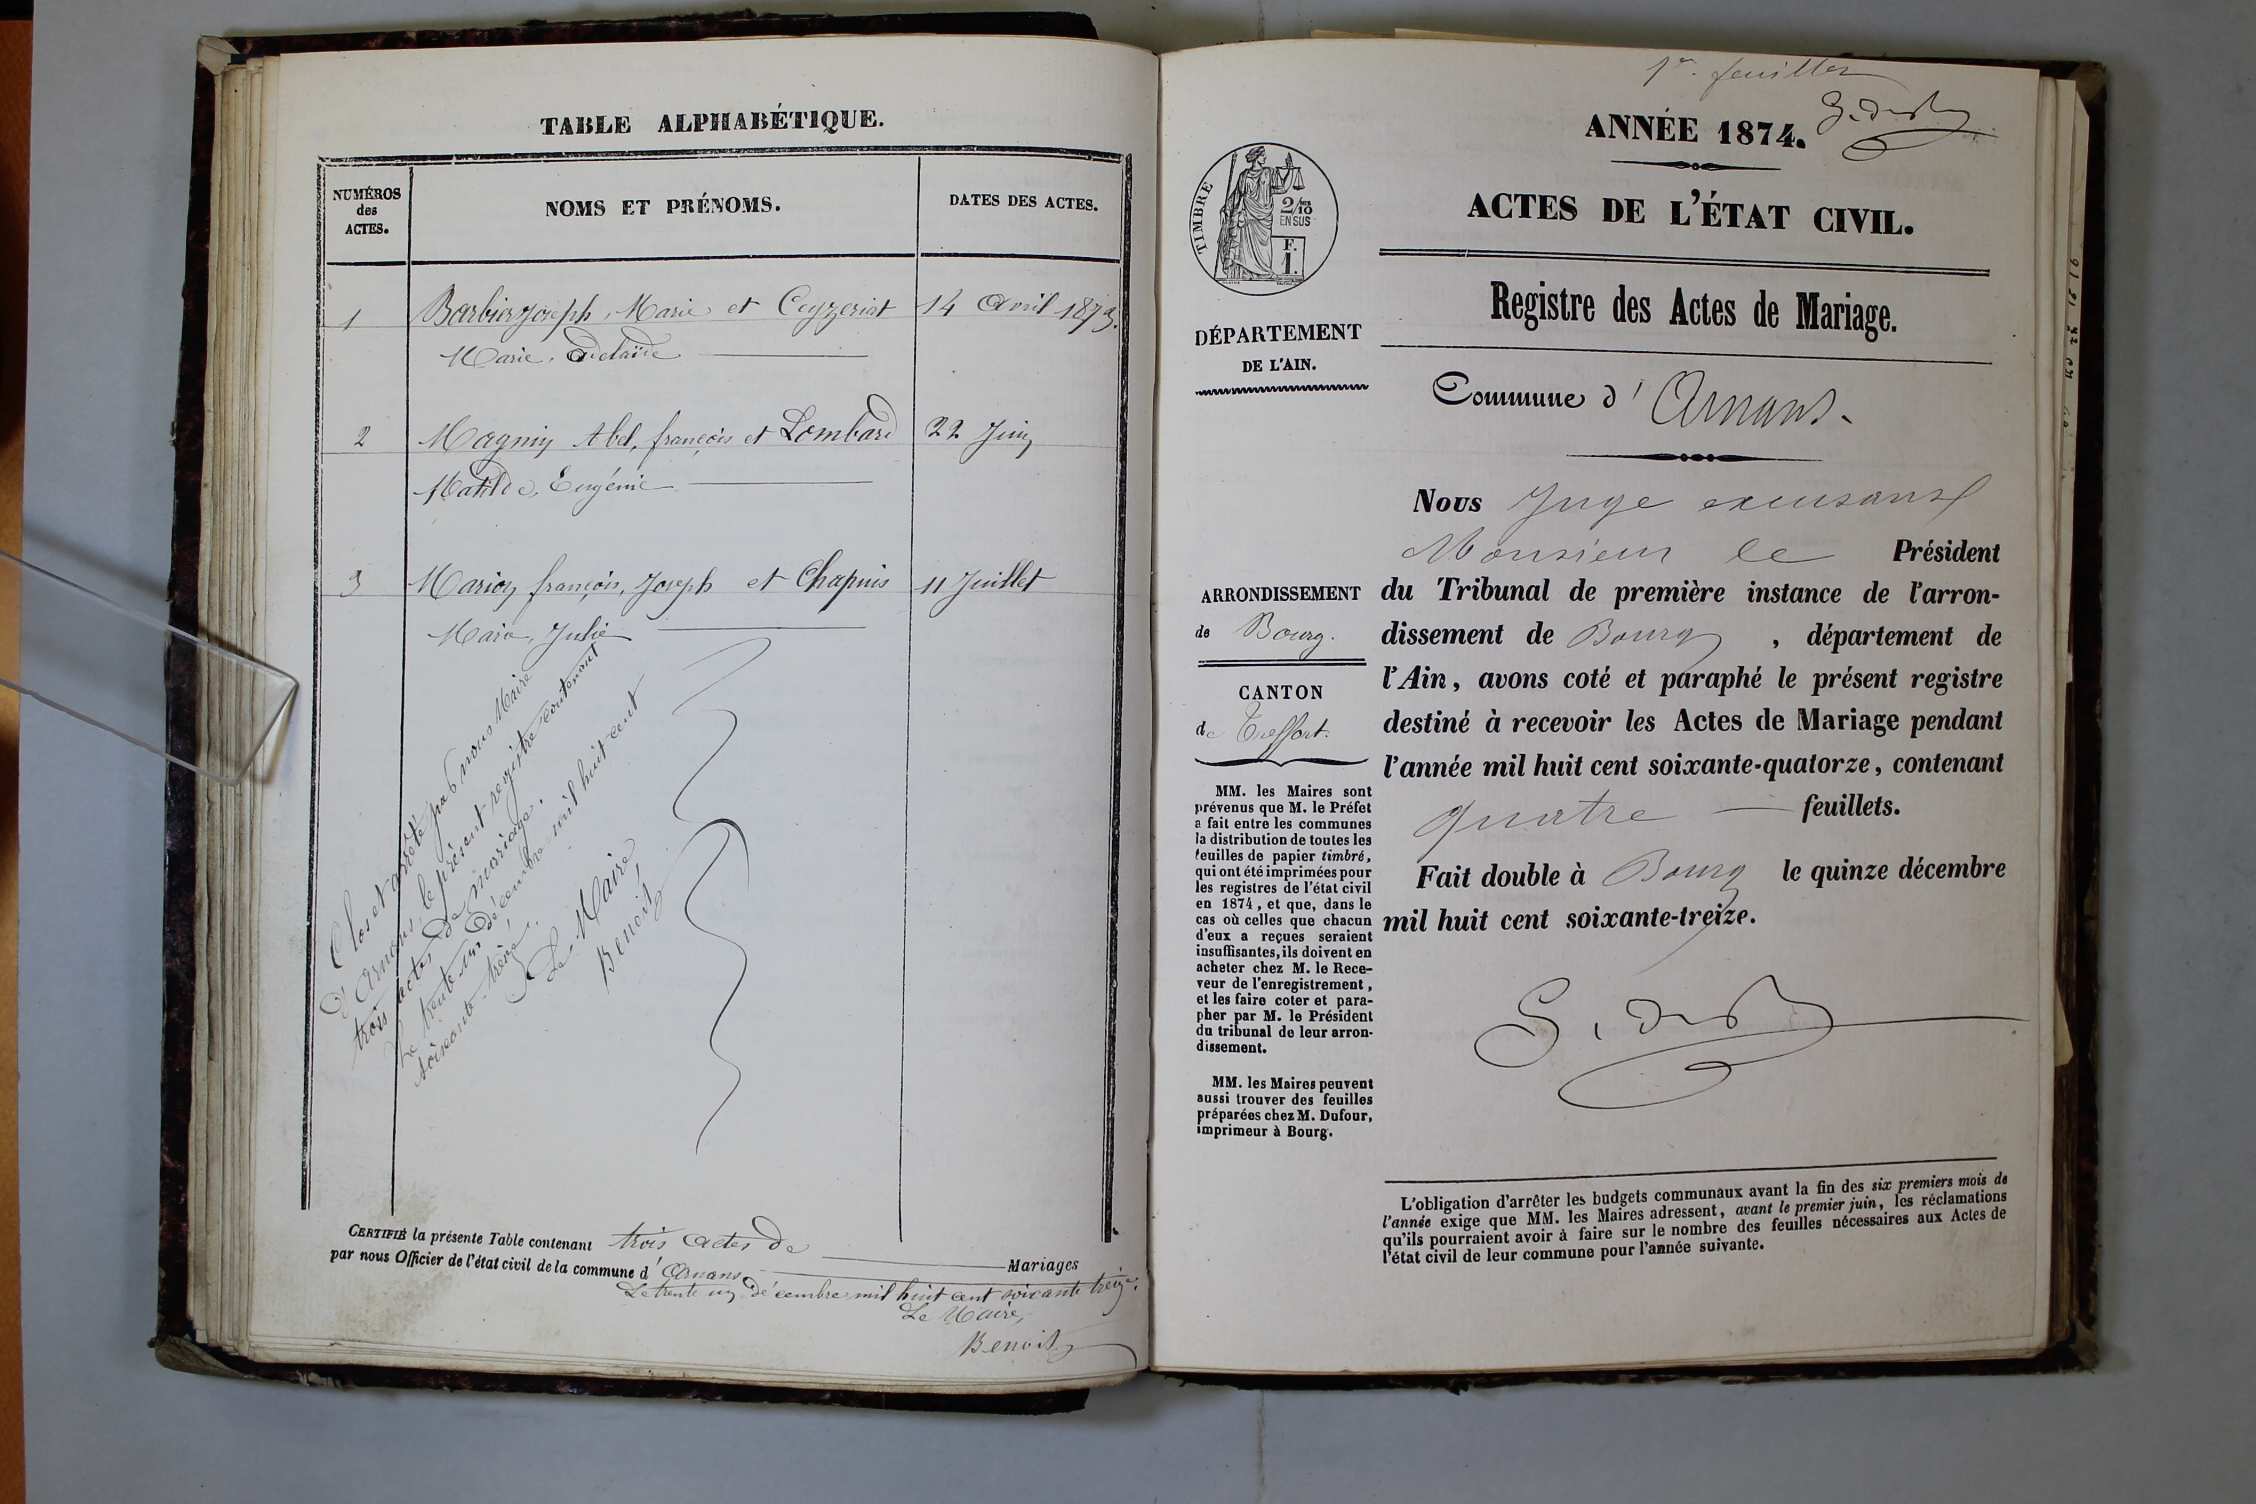 TABLE ALPHABÉTIQUE.
NUMÉROS
des
ACTES.
NOMS ET PRÉNOMS.
DATES DES ACTES.
1 Barbier Joseph, Marie et Ceyzeriat 14 Avril 1873.
Marie, Adelaïde
2 Magnin Abel, françois et Lombard 22 Juin
Matilde, Eugénie
3 Marion françois, Joseph et Chapuis 11 Juillet
Marie, Julie
Clos et arrêté par nous Maire
d'Arnans, le présent registre contenant
trois actes de mariage.
Le trente un Décembre mil huit cent
soixante treize.
Le Maire
Benoit
CERTIFIÉ la présente Table contenant trois actes de Mariages
par nous Officier de l'état civil de la commune d'Arnans
Le trente un Décembre mil huit cent soixante treize.
Le Maire,
Benoit
1er feuillet
ANNÉE 1874.
ACTES DE L'ÉTAT CIVIL.
Registre des Actes de Mariage.
TIMBRE
2/10
EN SUS
F.
1.
DÉPARTEMENT
DE L'AIN.
Commune d'Arnans.
ARRONDISSEMENT
de Bourg.
CANTON
de Treffort.
MM. les Maires sont
prévenus que M. le Préfet
a fait entre les communes
la distribution de toutes les
feuilles de papier timbré,
qui ont été imprimées pour
les registres de l'état civil
en 1874, et que, dans le
cas où celles que chacun
d'eux a reçues seraient
insuffisantes, ils doivent en
acheter chez M. le Rece-
veur de l'enregistrement,
et les faire coter et para-
pher par M. le Président
du tribunal de leur arron-
dissement.
MM. les Maires peuvent
aussi trouver des feuilles
préparées chez M. Dufour,
imprimeur à Bourg.
Nous Juge excusant
Monsieur le Président
du Tribunal de première instance de l'arron-
dissement de Bourg, département de
l'Ain, avons coté et paraphé le présent registre
destiné à recevoir les Actes de Mariage pendant
l'année mil huit cent soixante-quatorze, contenant
quatre feuillets.
Fait double à Bourg le quinze décembre
mil huit cent soixante-treize.
L'obligation d'arrêter les budgets communaux avant la fin des six premiers mois de
l'année exige que MM. les Maires adressent, avant le premier juin, les réclamations
qu'ils pourraient avoir à faire sur le nombre des feuilles nécessaires aux Actes de
l'état civil de leur commune pour l'année suivante.